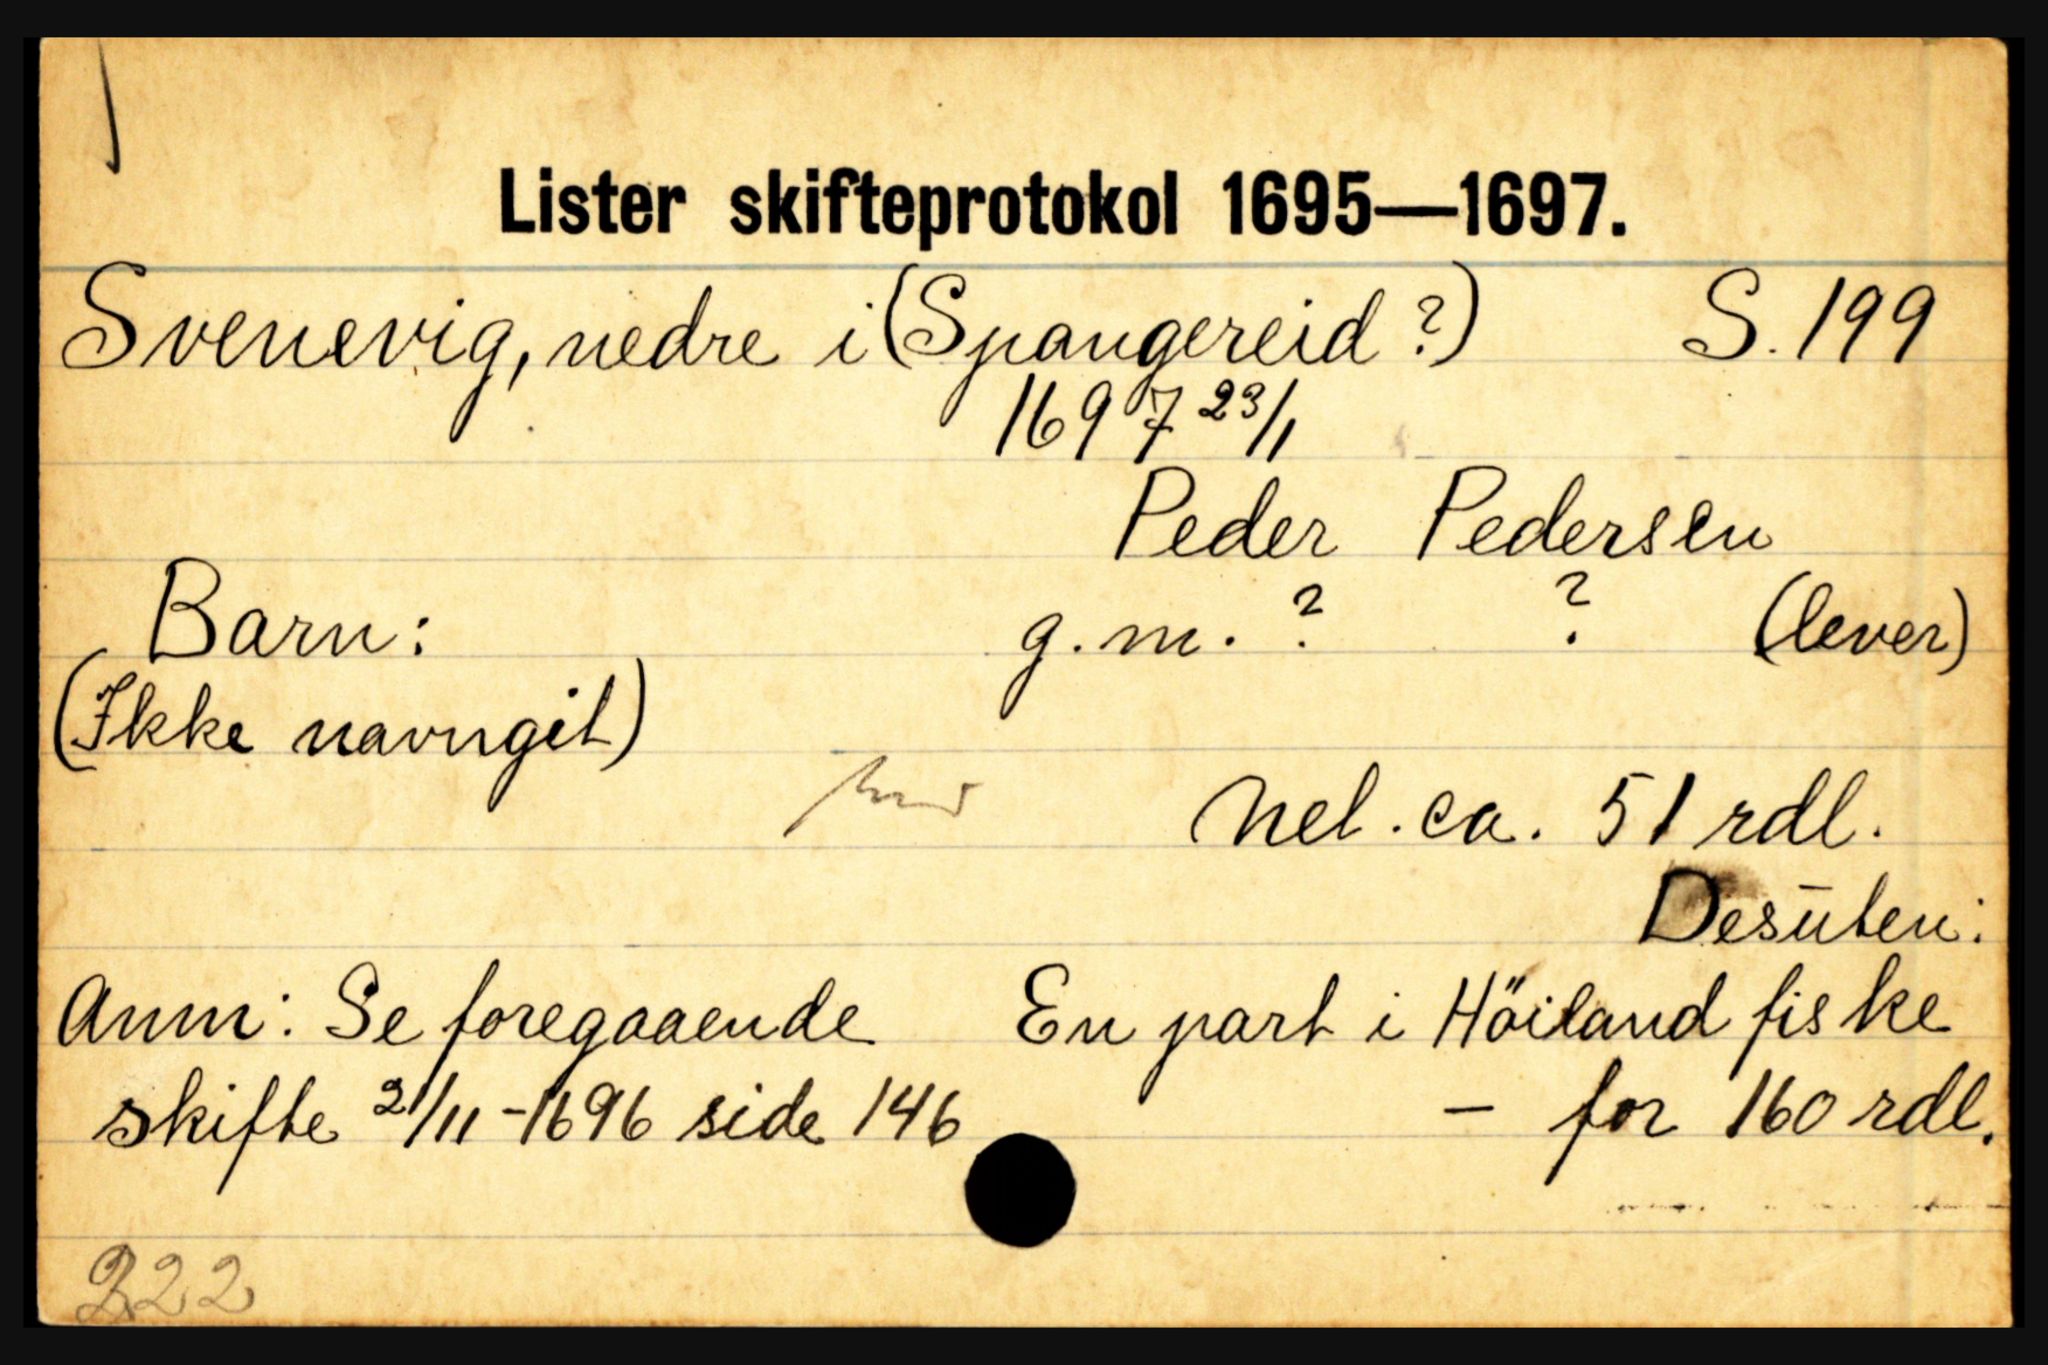 Lister skifteprotokol 1695—1697.
Svenevig, nedre i (Spangereid ?) S. 199
1697 23/1
Peder Pedersen
Barn: g.m. ? ? (lever)
(Ikke navngit)
Nel. ca. 51 rdl.
Desuten:
Anm: Se foregaaende En part i Höiland fiske
skifte 21/11 -1696 side 146 — for 160 rdl.
222